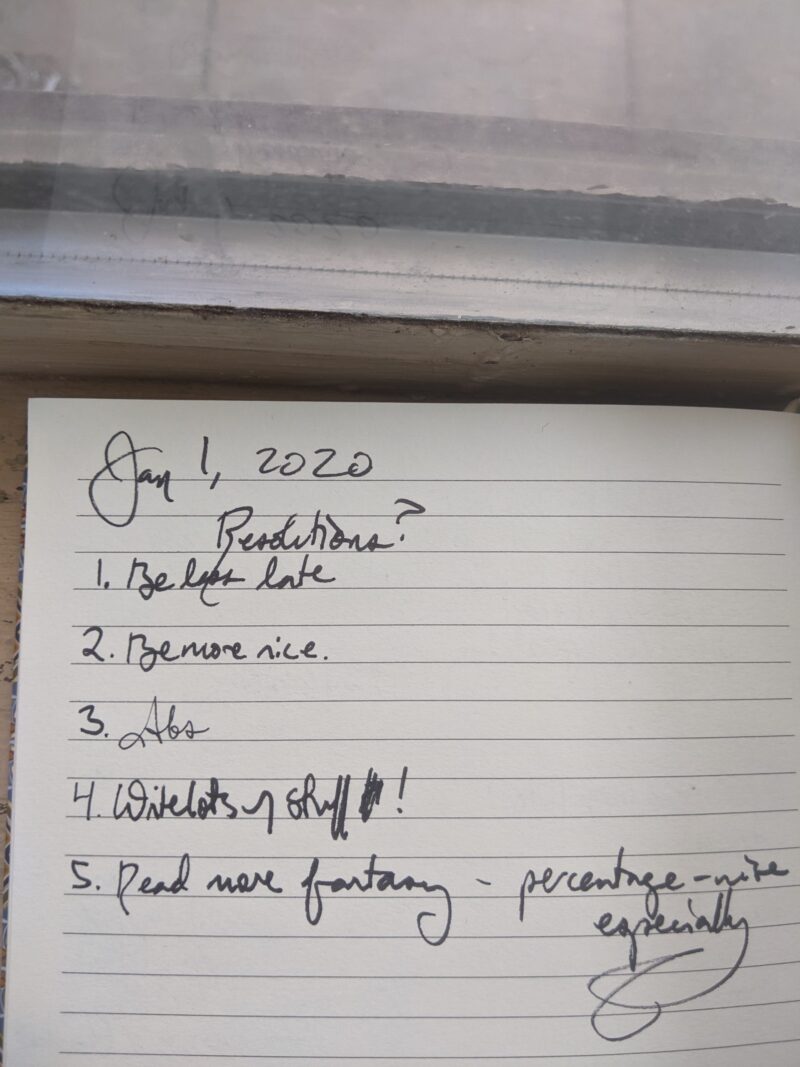 Jan 1, 2020
Resolutions?
1. Be less late
2. Be more nice.
3. Abs
4. Write lots of stuff !
5. Read more fantasy - percentage-wise
especially